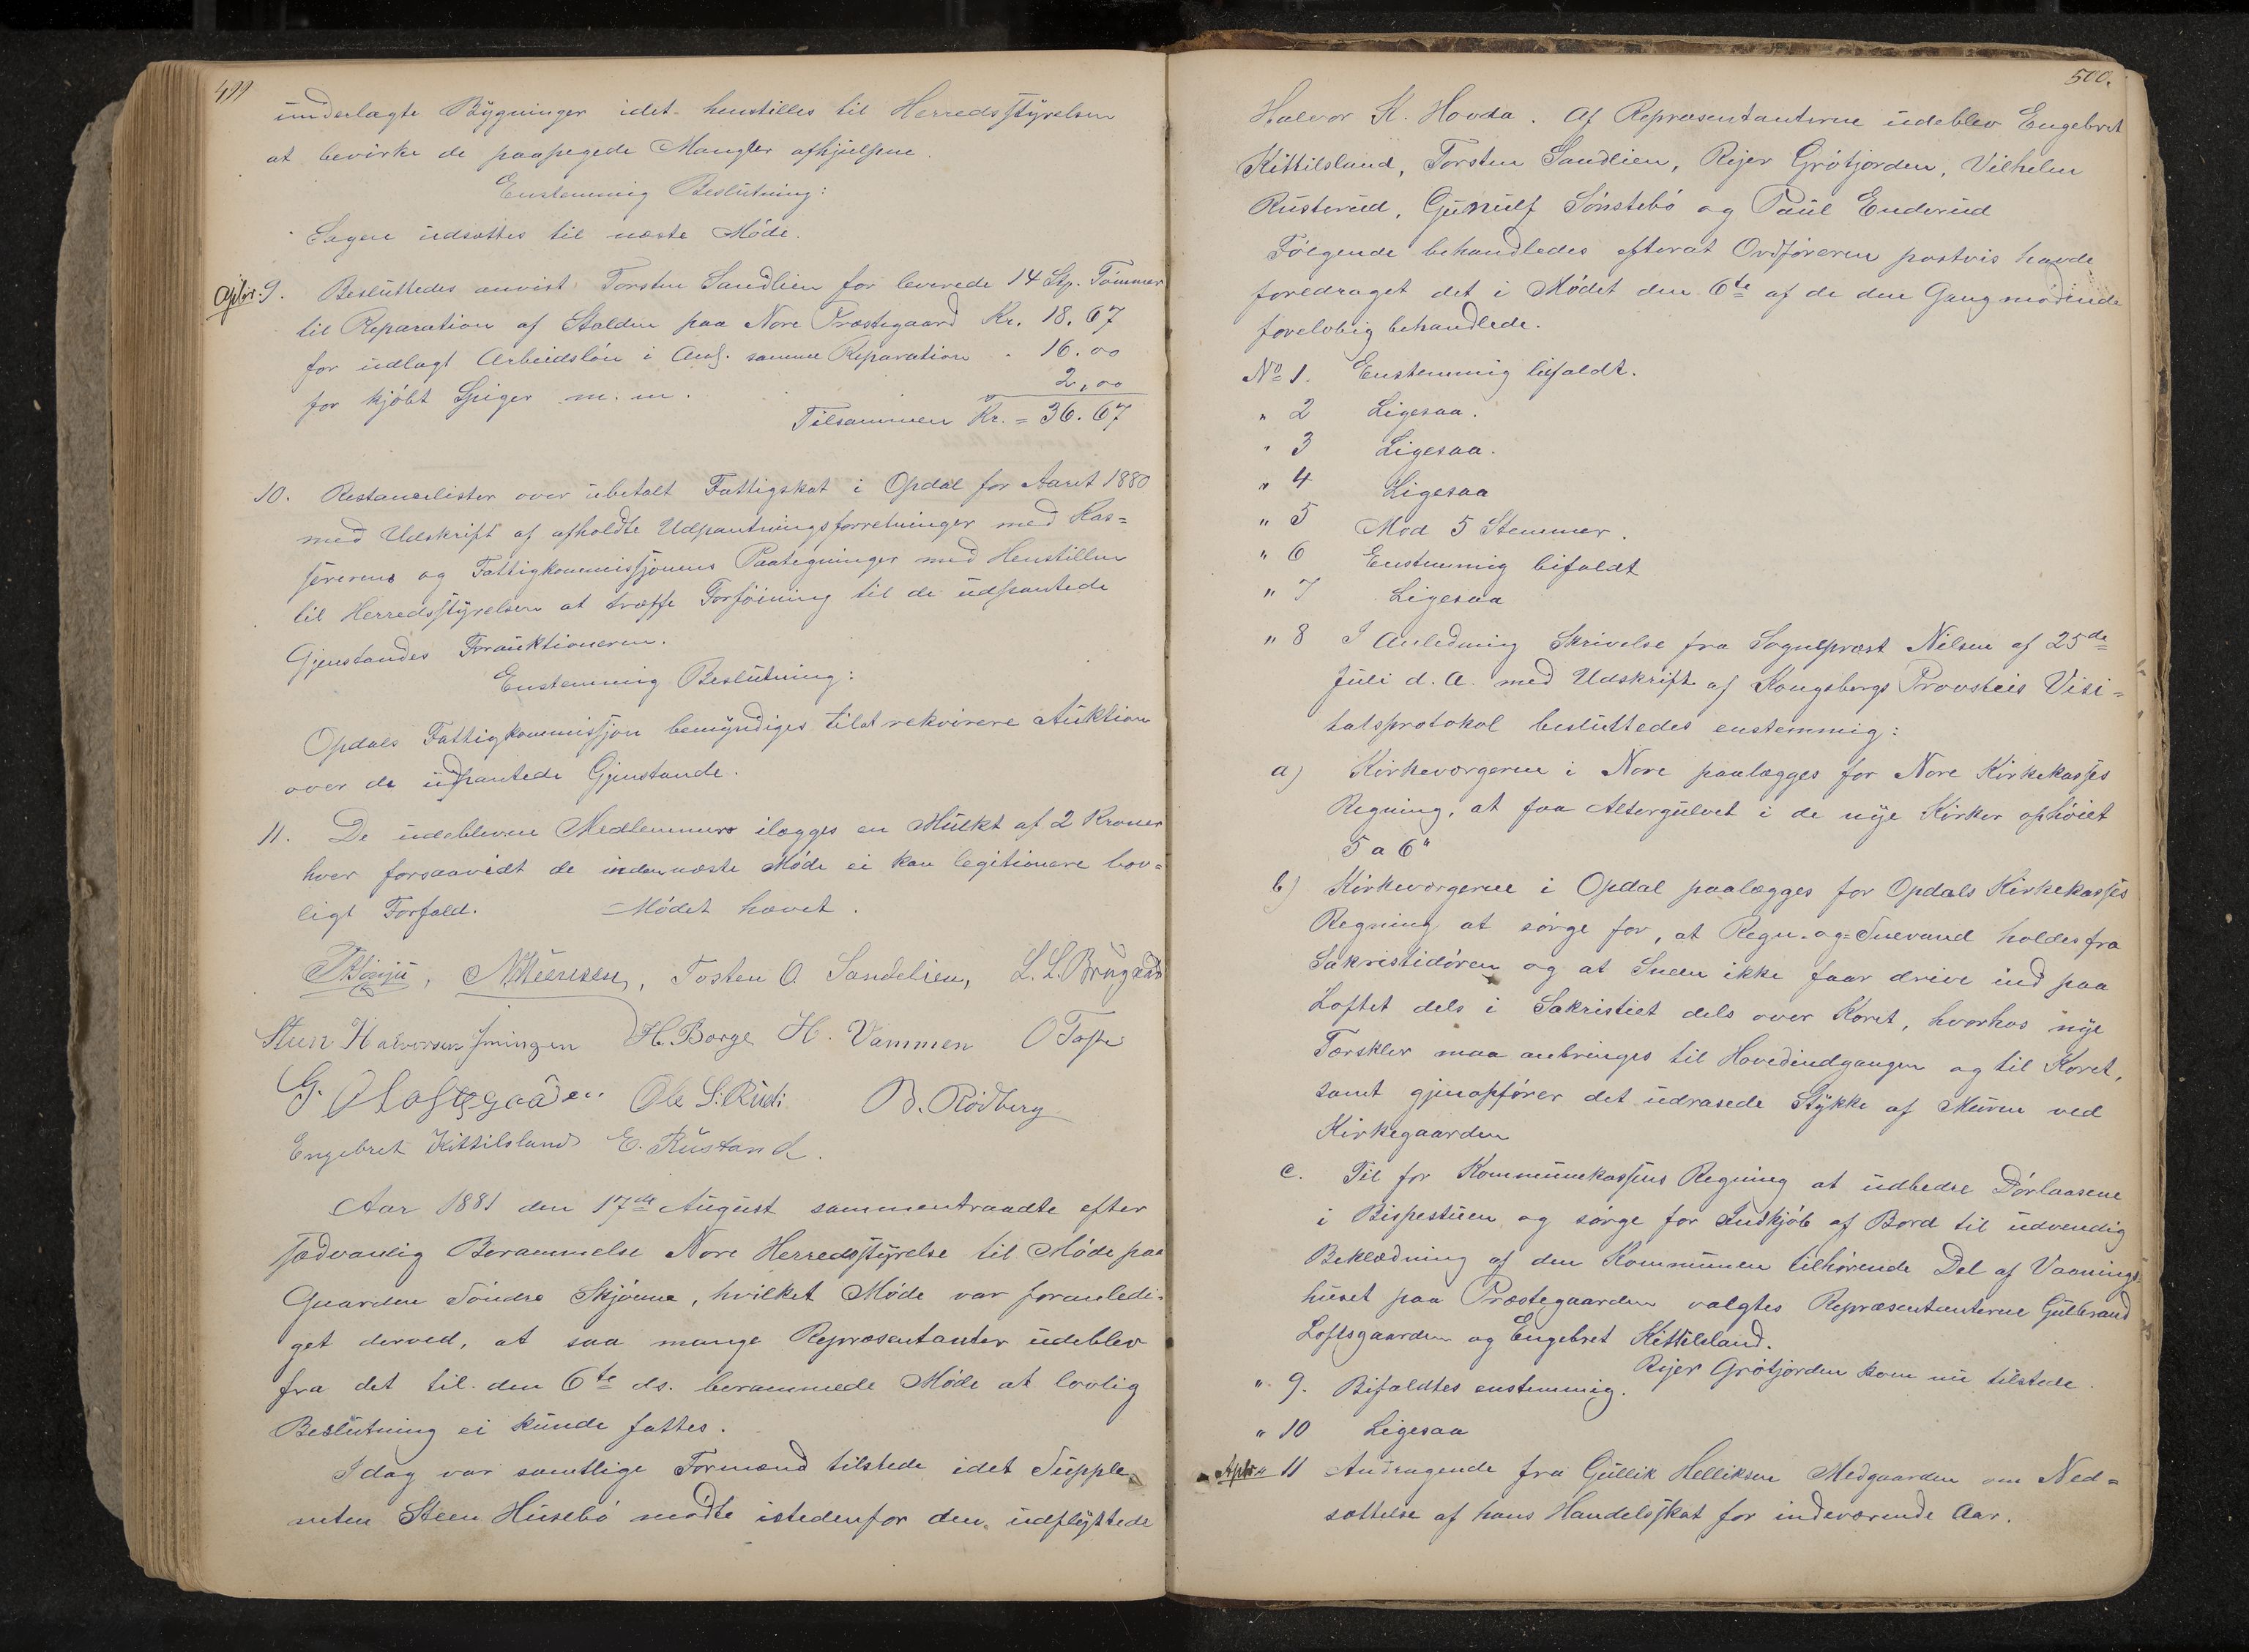 499
underlagte Bygninger idet henstilles til Herredsstyrelsen
at bevirke de paapegede Mangler afhjulpne.
Enstemmig Beslutning:
Sagen udsættes til næste Möde.
9. Besluttedes anvist Torsten Sandlien for leverede 14 Stp. Tömmer
til Reparation af Stalden paa Nore Præstegaard Kr. 18.67
for udlagt Arbeidslön i Anl. samme Reparation " 16.00
for kjöbt Spiger m. m. 2,00
Tilsammen Kr. = 36.67
10. Restancelister over ubetalt Fattigskat i Opdal for Aaret 1880
med Udskrift af afholdte Udpantningsforretninger med Kas=
sererens og Fattigkommissjonens Paategninger med Henstillen
til Herredsstyrelsen at træffe Forföining til de udpantede
Gjenstandes Forauktioneren.
Enstemmig Beslutning:
Opdals Fattigkommissjon bemyndiges til at rekvirere Auktion
over de udpantede Gjenstande.
11. De udeblevne Medlemmers ilægges en Mulkt af 2 Kroner
hver forsaavidt de inden næste Möde ei kan legitimere lov=
ligt Forfald. Mödet hævet.
Tosten O. Sandelien, L. L. Brugaard
Steen Halvorsen H. Borge H. Vammen O Tofte
G. Loftsgaarden Ole S. Rudi B. Rödberg
Engebret Kittilsland E. Rustand.
Aar 1881 den 17de August sammentraadte efter
sædvanlig Berammelse Nore Herredsstyrelse til Möde paa
Gaarden Söndre Skjönne, hvilket Möde var foranledi=
get derved, at saa mange Repræsentanter udeblev
fra det til den 6te ds. berammede Möde at lovlig
Beslutning ei kunde fattes.
Idag var samtlige Formænd tilstede idet Supple
anten Steen Husebö mödte istedenfor den udflyttede
500.
Halvor K. Hovda. Af Repræsentanterne udeblev Engebret
Kittilsland, Torsten Sandlien, Rejer Grötjorden, Vilhelm
Rusterud, Gunulf Sönstebö og Paul Enderud
Fölgende behandledes efterat Ordföreren postvis havde
foredraget det i Mödet den 6te af de den Gang mödende
forelöbig behandlede.
No 1. Enstemmig bifaldt.
" 2 Ligesaa.
" 3 Ligesaa.
" 4 Ligesaa
" 5 Mod 5 Stemmer.
" 6 Enstemmig bifaldt
" 7 Ligesaa
" 8 I Anledning Skrivelse fra Sognepræst Nilsen af 25de
Juli d. A. med Udskrift af Kongsbergs Provsteis Visi=
tatsprotokol besluttedes enstemmig:
a) Kirkeværgerne i Nore paalægges for Nore Kirkekasses
Regning, at faa Altergulvet i de nye Kirker ophöiet
5 a 6"
b) Kirkeværgerne i Opdal paalægges for Opdals Kirkekasses
Regning at sörge for, at Regn- og Snevand holdes fra
Sakristidören og at Sneen ikke faar drive ind paa
Loftet dels i Sakristiet dels over Koret, hvorhos nye
Tærskler maa anbringes til Hovedindgangen og til Koret,
samt gjenopförer det udrasede Stykke af Muren ved
Kirkegaarden
c. Til for Kommunekassens Regning at udbedre Dörlaasene
i Bispestuen og sörge for Indkjöb af Bord til udvendig
Beklædning af den Kommunen tilhörende Del af Vaanings=
huset paa Præstegaarden valgtes Repræsentanterne Gulbrand
Loftsgaarden og Engebret Kittilsland.
Rejer Grötjorden kom nu tilstede.
" 9. Bifaldtes enstemmig.
" 10 Ligesaa
" 11 Andragende fra Gullik Helliksen Medgaarden om Ned=
sættelse af hans Handelsskat for indeværende Aar.